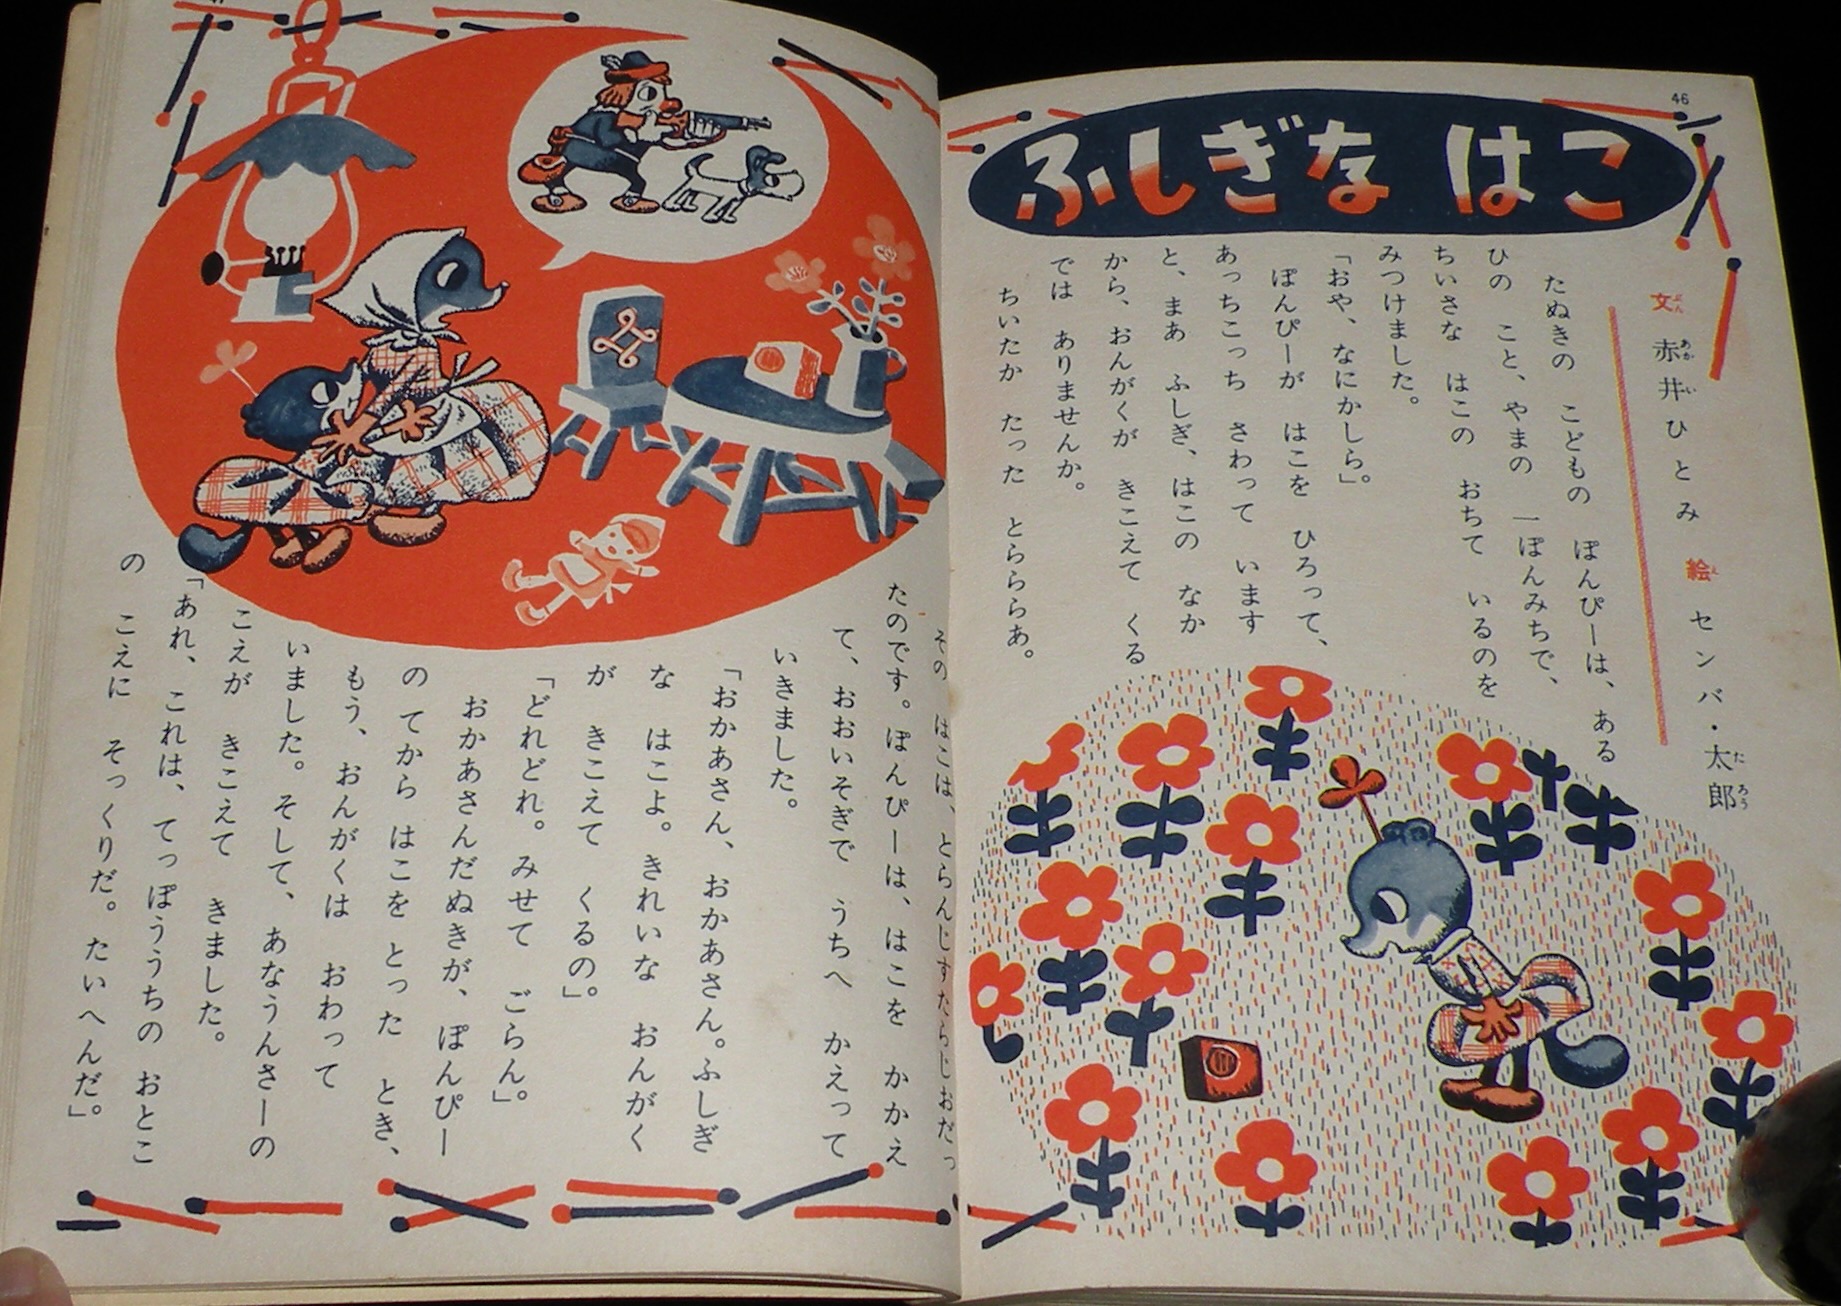 46
ふしぎな はこ
文 赤井ひとみ 絵 センバ・太郎
たぬきの こどもの ぽんぴーは、ある
ひの こと、やまの 一ぽんみちで、
ちいさな はこの おちて いるのを
みつけました。
「おや、なにかしら」。
ぽんぴーが はこを ひろって、
あっちこっち さわって います
と、まあ ふしぎ、はこの なか
から、おんがくが きこえて くる
では ありませんか。
ちいたか たった とららら​あ。
その はこは、とらんじすたらじおだっ
たのです。ぽんぴーは、はこを かかえ
て、おおいそぎで うちへ かえって
いきました。
「おかあさん、おかあさん。ふしぎ
な はこよ。きれいな おんがく
が きこえて くるの」。
「どれどれ。みせて ごらん」。
おかあさんだぬきが、ぽんぴー
の てから はこを とった とき、
もう、おんがくは おわって
いました。そして、あなうんさーの
こえが きこえて きました。
「あれ、これは、てっぽううちの おとこ
の こえに そっくりだ。たいへんだ」。